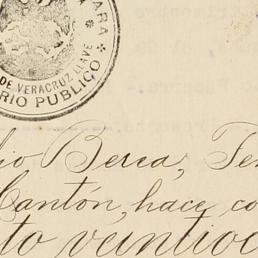 ARA
DE VERACRUZ LLAVE
RIO PUBLICO
lio Berea, Ten
Cantón, hace co
to veintioc